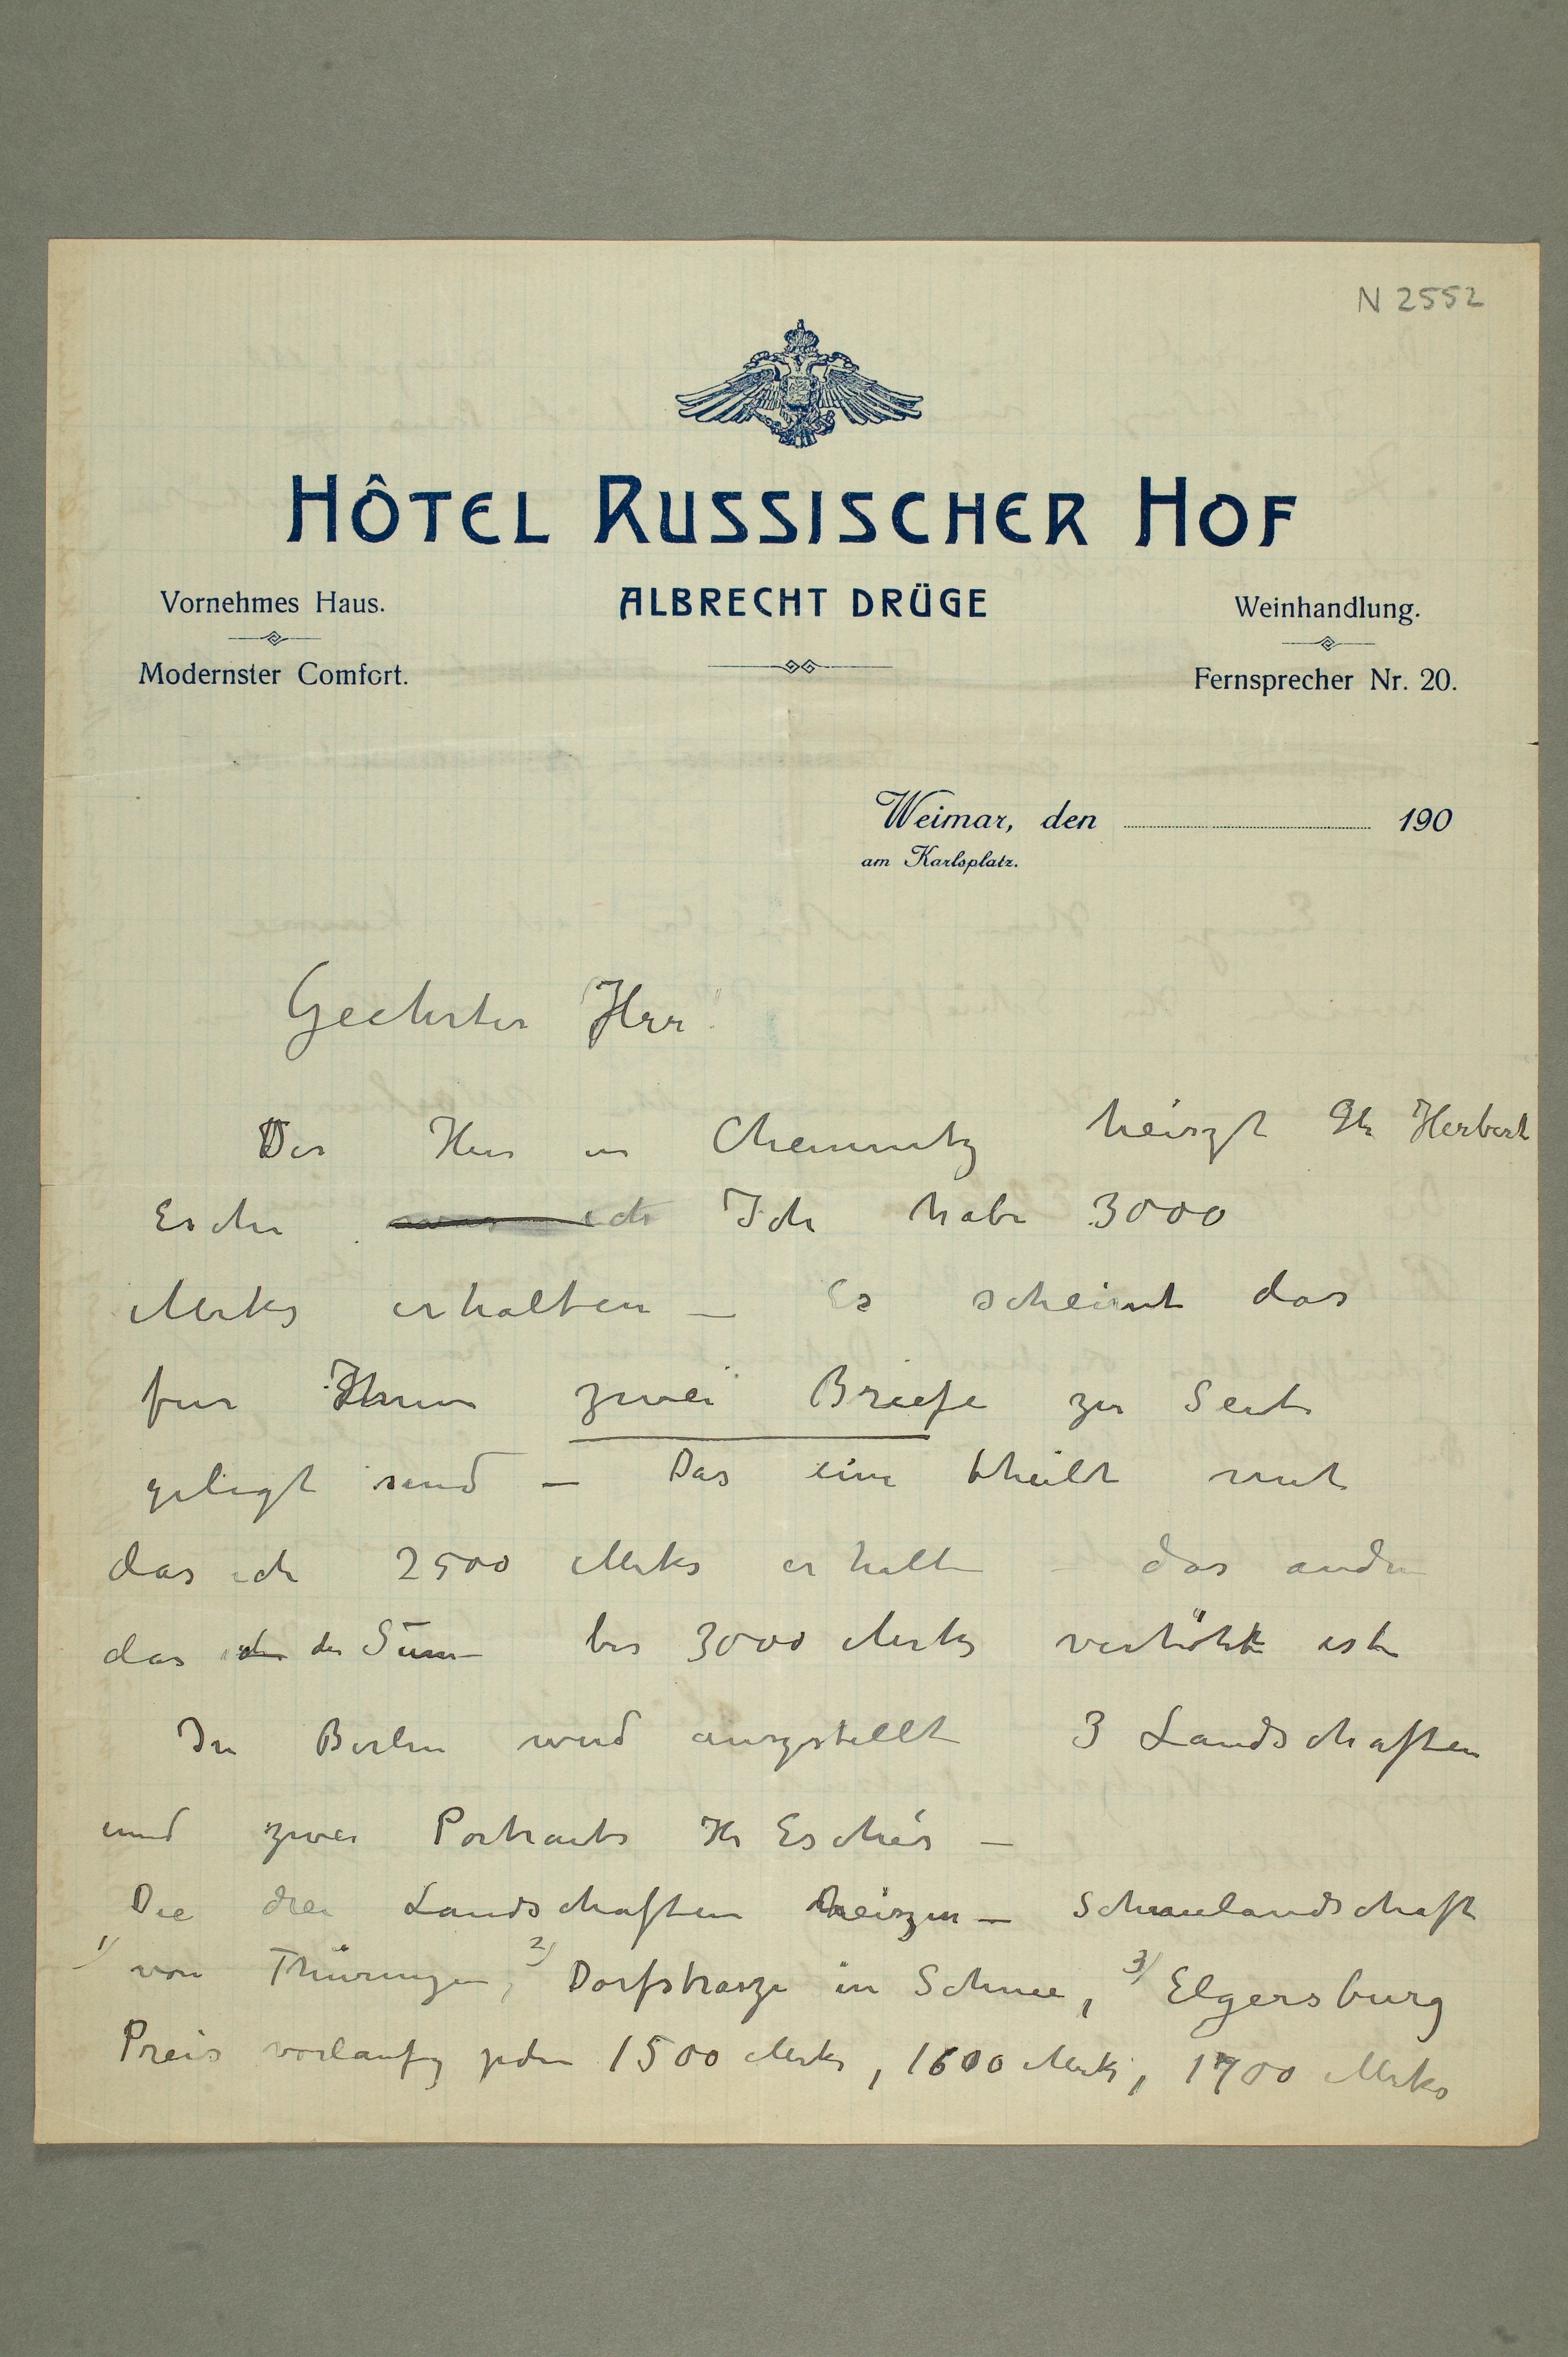 N 2552
HÔTEL RUSSISCHER HOF
Vornehmes Haus.
ALBRECHT DRÜGE
Weinhandlung.
Modernster Comfort.
Fernsprecher Nr. 20.
Weimar, den 190
am Karlsplatz.
Geehrter Herr
Der Herr in Chemnitz heiszt Herbert
Esche ich Ich habe 3000
Mrks erhalten – Es scheint das
fur Ihnen zwei Briefe zur Seite
gelegt sind – Das eine theilt mit
das ich 2500 Mrks erhalte – das andre
das der Sum bis 3000 Mrks verhöht ist
In Berlin wird auszstellt 3 Landschaften
und zwei Portraits Hr Esche's –
Die drei Landschaften heiszen – Schneelandschaft
1) von Thüringen, 2) Dorfstrasze in Schnee, 3) Elgersburg
Preis vorlaufig jeden 1500 Mrks, 1600 Mrks, 1700 Mrks